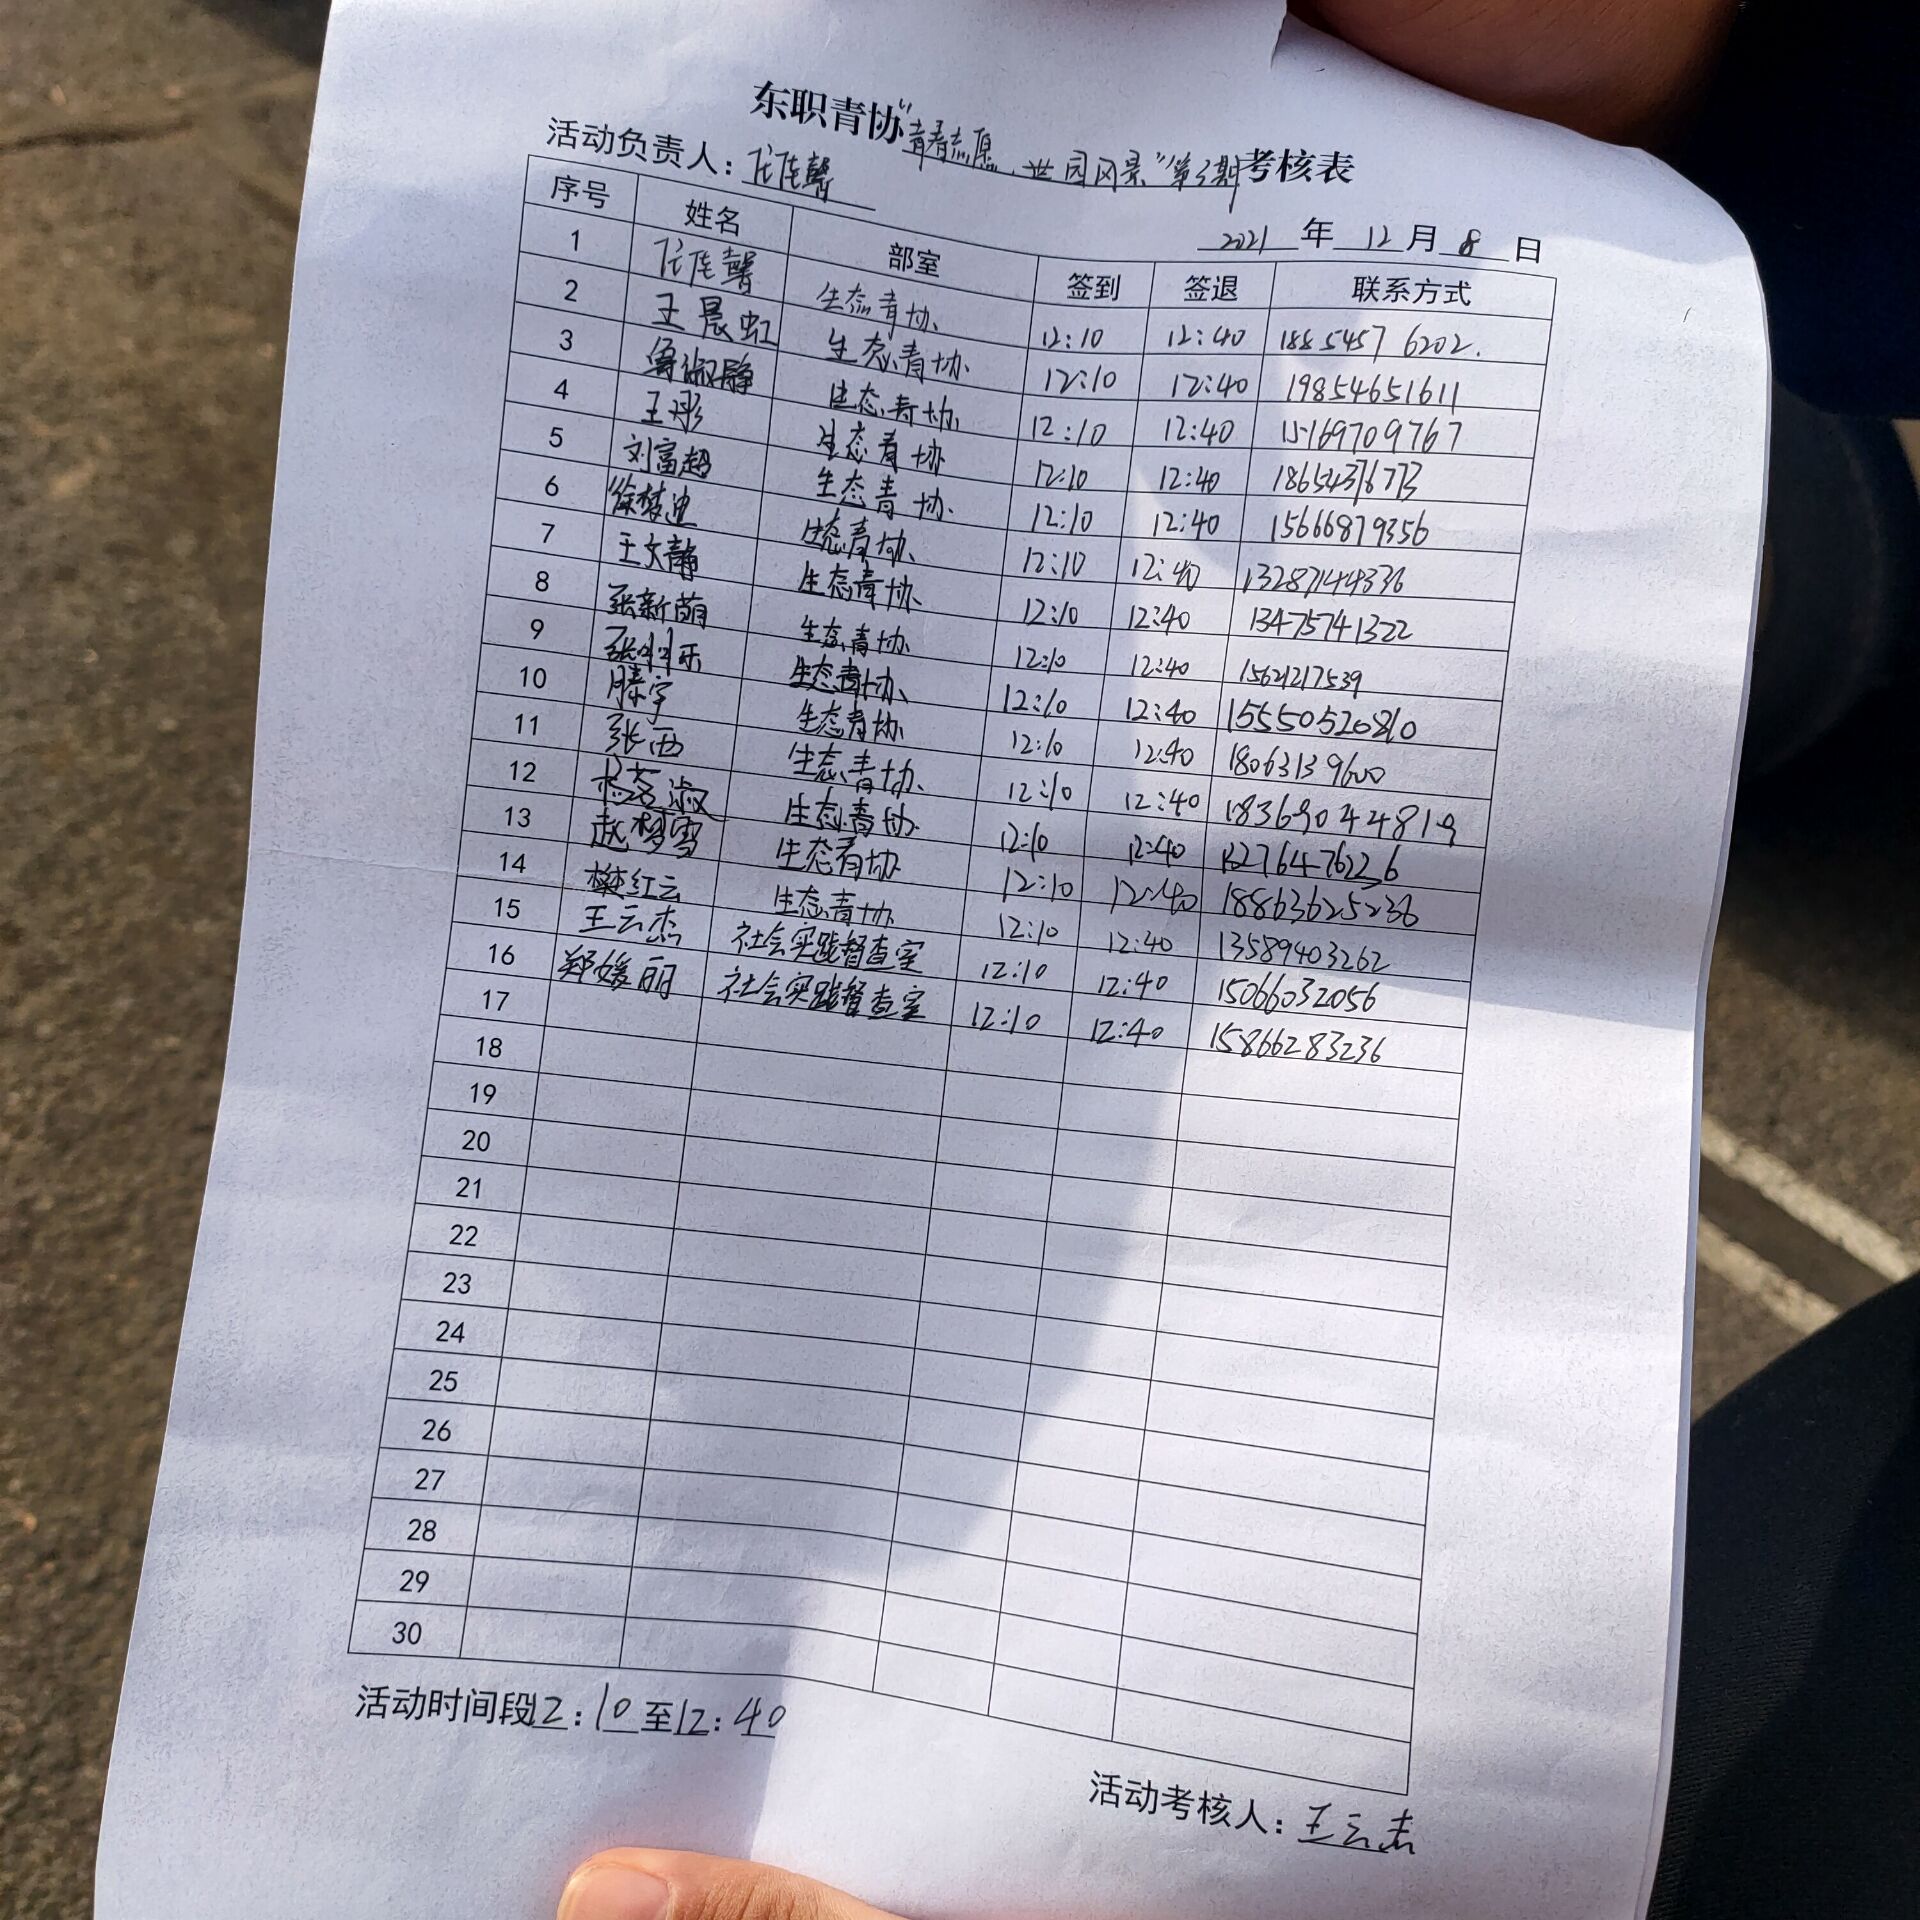 东职青协“青春志愿，世园风景”第3期考核表
活动负责人：任佳馨
2021 年 12 月 8 日
序号 姓名 部室 签到 签退 联系方式
1 任佳馨 生态青协 12:10 12:40 18854576202
2 王晨虹 生态青协 12:10 12:40 19854651611
3 鲁淑静 生态青协 12:10 12:40 15169709767
4 王彤 生态青协 12:10 12:40
5 刘富超 生态青协 12:10 12:40 15666879356
6 徐梦迪 生态青协 12:10 12:40 13287144336
7 王文静 生态青协 12:10 12:40 13475741322
8 张新萌 生态青协 12:10 12:40 15621217539
9 生态青协 12:10 12:40 15550520810
10 滕宇 生态青协 12:10 12:40 18063139600
11 张西 生态青协 12:10 12:40 18369044819
12 杨茗淑 生态青协 12:10 12:40
13 赵梦雪 生态青协 12:10 12:40 18863625236
14 樊红云 生态青协 12:10 12:40 13589403262
15 王云杰 社会实践督查室 12:10 12:40 15066032056
16 郑媛丽 社会实践督查室 12:10 12:40 15866283236
17
18
19
20
21
22
23
24
25
26
27
28
29
30
活动时间段12：10至12：40
活动考核人：王云杰